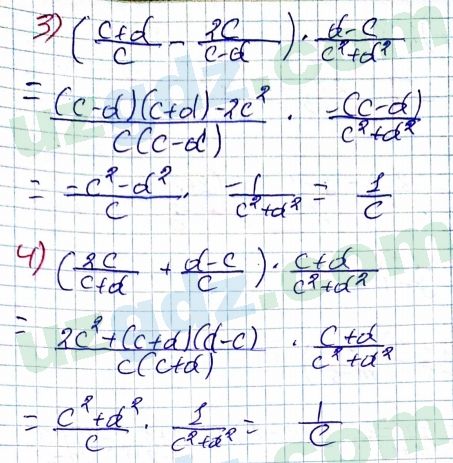 3) ( (c+d)/c - 2c/(c-d) ) · (d-c)/(c²+d²)
= ((c-d)(c+d)-2c²)/(c(c-d)) · (-(c-d))/(c²+d²)
= (-c²-d²)/c · (-1)/(c²+d²) = 1/c
4) ( 2c/(c+d) + (d-c)/c ) · (c+d)/(c²+d²)
=
(2c²+(c+d)(d-c))/(c(c+d)) · (c+d)/(c²+d²)
= (c²+d²)/c · 1/(c²+d²) = 1/c
uzgdz.com